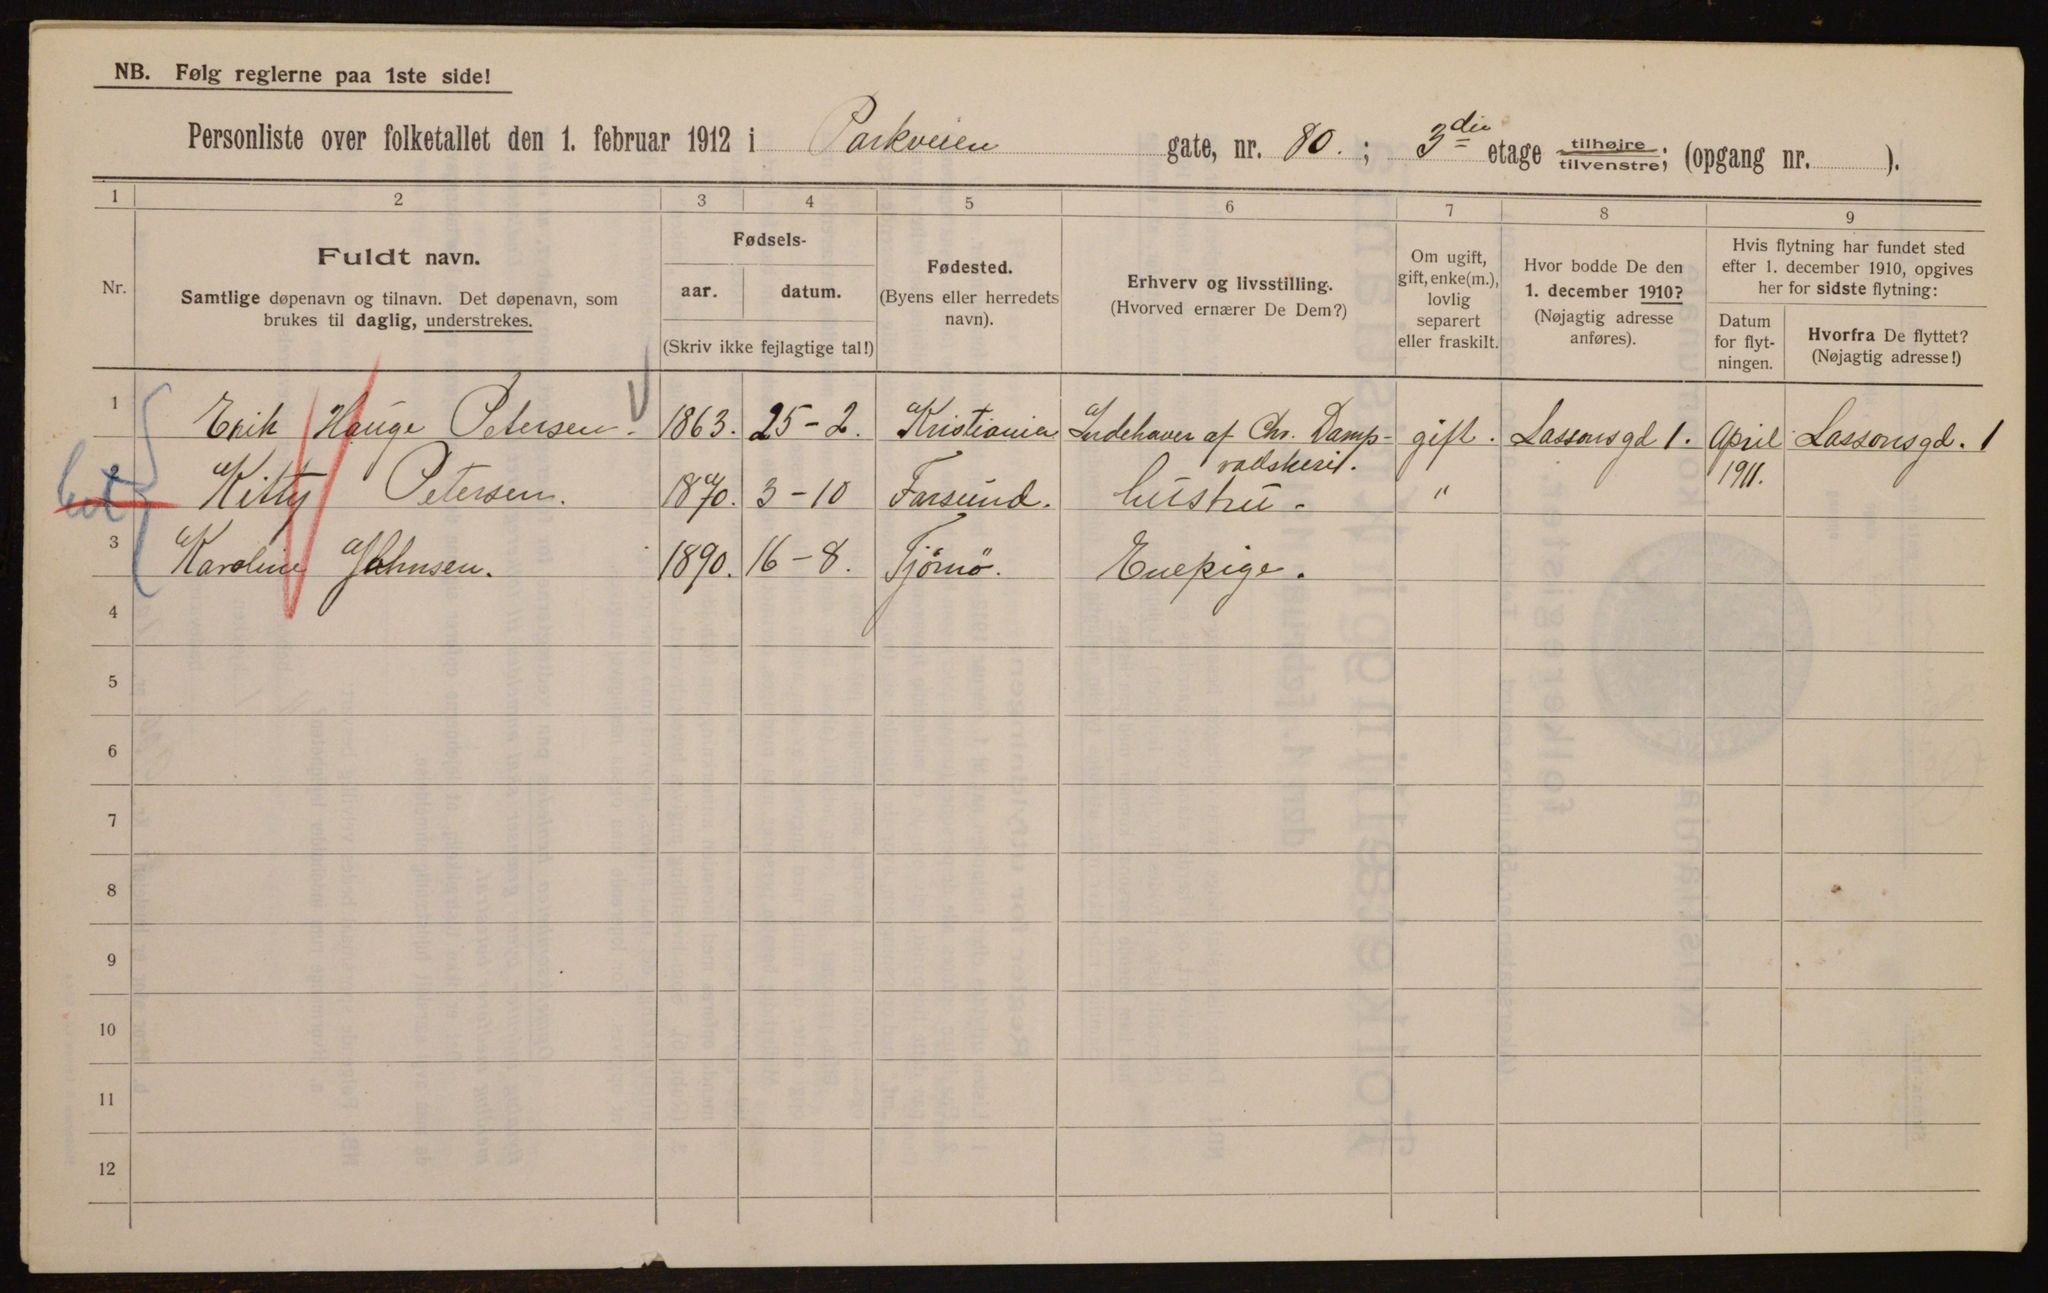 NB. Følg reglerne paa 1ste side!
Personliste over folketallet den 1. februar 1912 i Parkveien gate, nr. 80. ; 3die etage tilhøjre, tilvenstre, (opgang nr. ).
1 2 3 4 5 6 7 8 9
Nr.
Fuldt navn.
Samtlige døpenavn og tilnavn. Det døpenavn, som
brukes til daglig, understrekes.
Fødsels-
aar. datum.
(Skriv ikke fejlagtige tal!)
Fødested.
(Byens eller herredets
navn).
Erhverv og livsstilling.
(Hvorved ernærer De Dem?)
Om ugift,
gift, enke(m.),
lovlig
separert
eller fraskilt.
Hvor bodde De den
1. december 1910?
(Nøjagtig adresse
anføres).
Hvis flytning har fundet sted
efter 1. december 1910, opgives
her for sidste flytning:
Datum
for flyt-
ningen.
Hvorfra De flyttet?
(Nøjagtig adresse!)
1 Erik Hauge Petersen. 1863. 25-2. Kristiania Indehaver af Chr. Damp- gift. Lassonsgd 1. April Lassonsgd. 1
vadskeri. 1911.
2 Kitty Petersen. 1870. 3-10 Farsund. hustru. "
3 Karoline Johnsen. 1890. 16-8. Tjömö. Enepige.
4
5
6
7
8
9
10
11
12